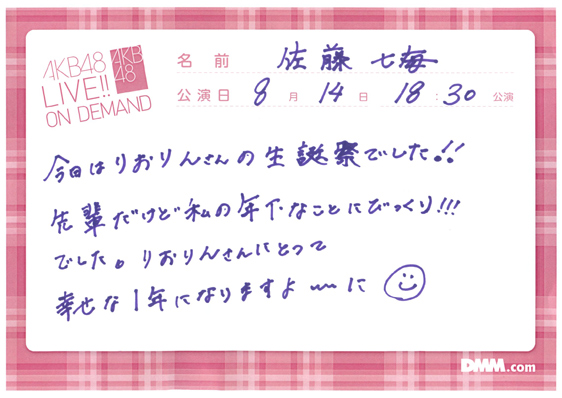 AKB48
LIVE!!
ON DEMAND
AKB
48
名前 佐藤七海
公演日 8月14日 18:30公演
今日はりおりんさんの生誕祭でした!!
先輩だけど私の年下なことにびっくり!!!
でした。りおりんさんにとって
幸せな1年になりますよ〰に
DMM.com